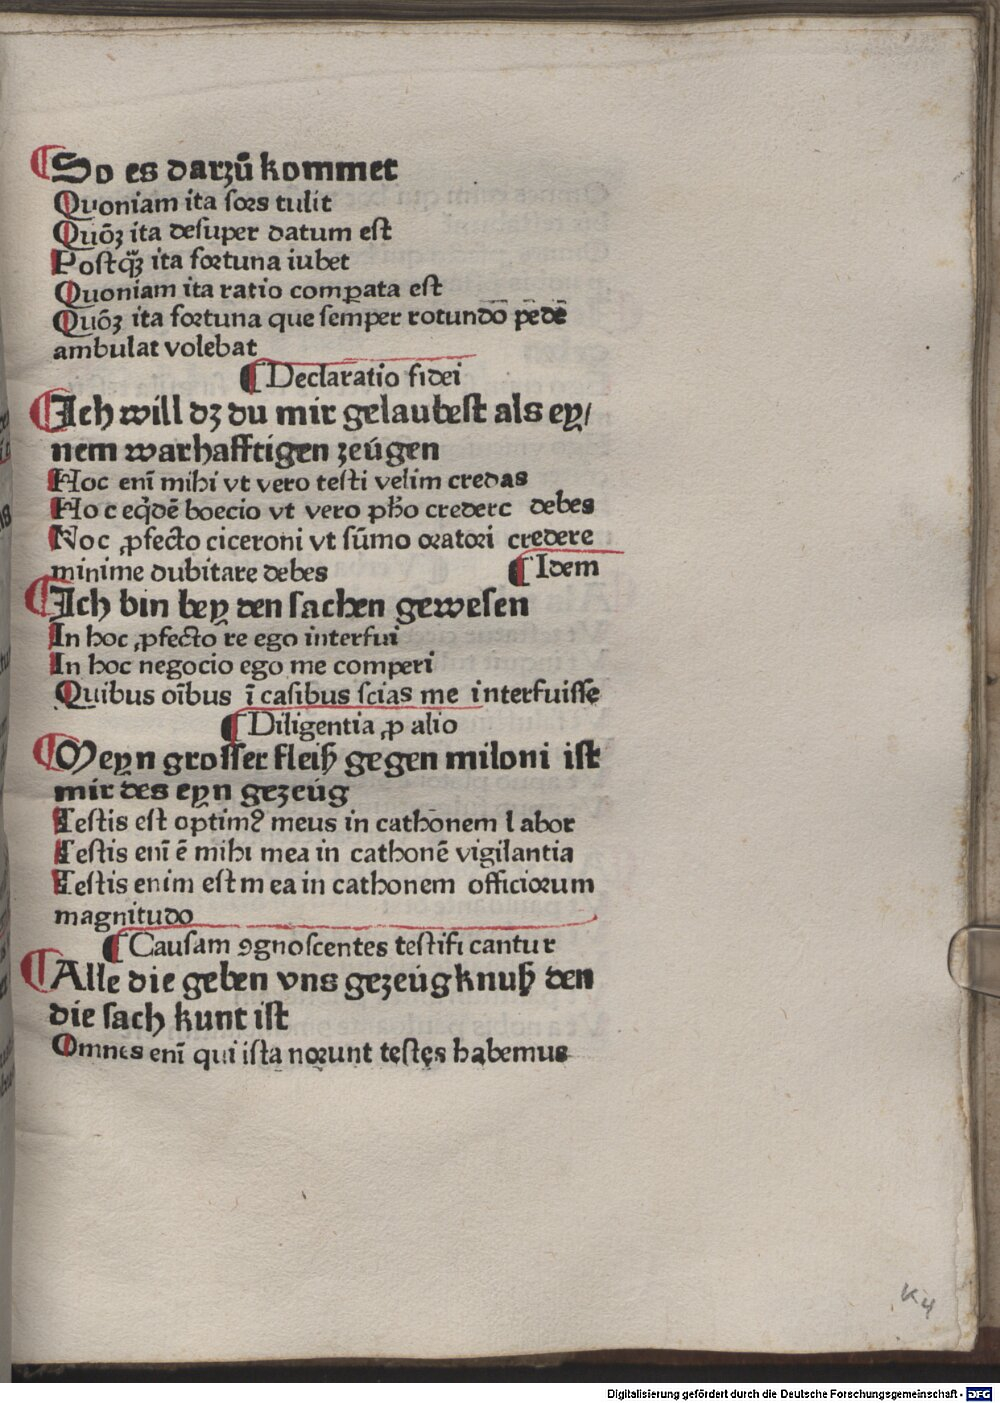 ¶So es darzů kommet
Quoniam ita sors tulit
Quōꝫ ita desuper datum est
Postqꝫ̄ ita fortuna iubet
Quoniam ita ratio comparata est
Quōꝫ ita fortuna que semper rotundo pede
ambulat volebat
¶Declaratio fidei
¶Ich will dz du mir gelaubest als ey/
nem warhafftigen zeúgen
Hoc eni̅ mihi vt vero testi velim credas
Ho c eq̇de̅ boecio vt vero ph̅o crederc debes
Noc ꝓfecto ciceroni vt su̅mo oratori credere
minime dubitare debes
¶Idem
¶Ich bin bey den sachen gewesen
In hoc ꝓfecto re ego interfui
In hoc negocio ego me comperi
Quibus oi̅bus i̅ casibus scias me interfuisse
¶Diligentia ꝓ alio
¶Meyn grosser fleiß gegen miloni ist
mir des eyn gezeúg
Testis est optimꝰ meus in cathonem l abor
Testis eni̅ e̅ mihi mea in cathone̅ vigilantia
Testis enim est m ea in cathonem officiorum
magnitudo
¶Causam ꝯgnoscentes testifi cantur
¶Alle die geben vns gezeúgknuß den
die sach kunt ist
Omnes eni̅ qui ista norunt testes habemus
K4
Digitalisierung gefördert durch die Deutsche Forschungsgemeinschaft - DFG